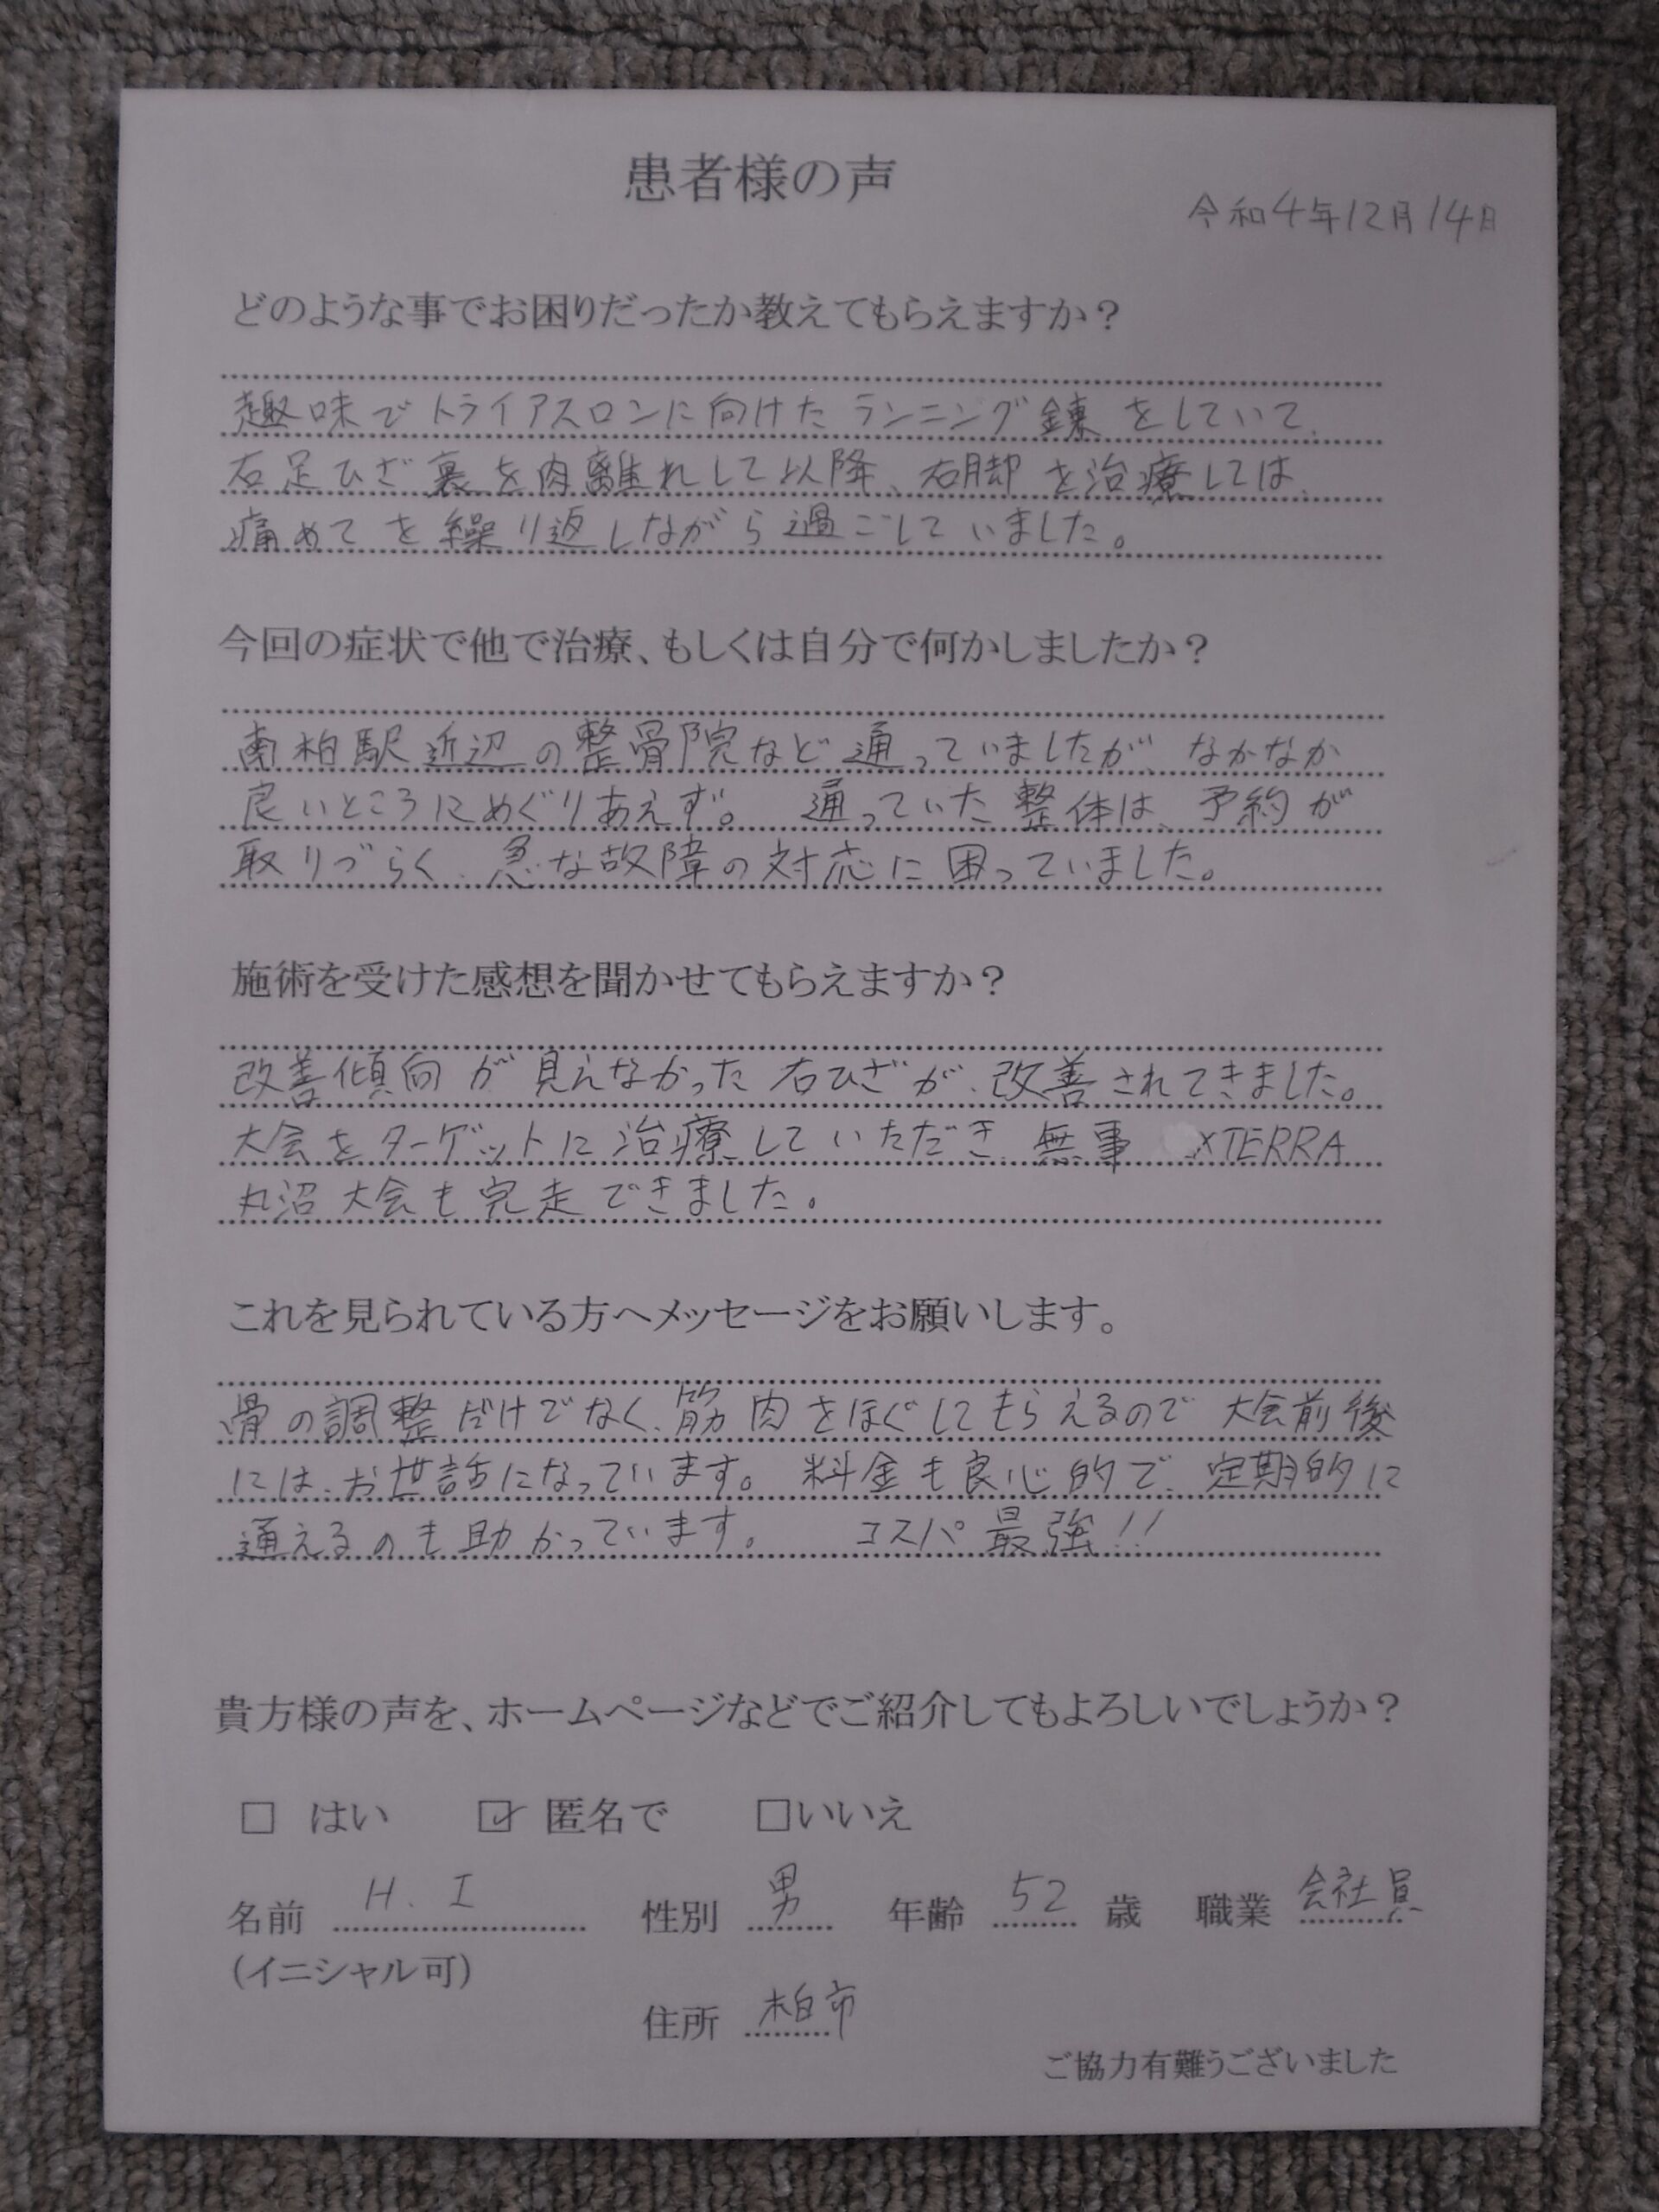 患者様の声
令和4年12月14日
どのような事でお困りだったか教えてもらえますか？
趣味でトライアスロンに向けたランニング錬をしていて、
右足ひざ裏を肉離れして以降、右脚を治療しては、
痛めてを繰り返しながら過ごしていました。
今回の症状で他で治療、もしくは自分で何かしましたか？
南柏駅近辺の整骨院など通っていましたが、なかなか
良いところにめぐりあえず。 通っていた整体は、予約が
取りづらく、急な故障の対応に困っていました。
施術を受けた感想を聞かせてもらえますか？
改善傾向が見えなかった右ひざが、改善されてきました。
大会をターゲットに治療していただき、無事 XTERRA
丸沼大会も完走できました。
これを見られている方へメッセージをお願いします。
骨の調整だけでなく、筋肉をほぐしてもらえるので大会前後
には、お世話になっています。 料金も良心的で、定期的に
通えるのも助かっています。 コスパ最強!!
貴方様の声を、ホームページなどでご紹介してもよろしいでしょうか？
□ はい ☑ 匿名で □いいえ
名前 H. I 性別 男 年齢 52 歳 職業 会社員
（イニシャル可）
住所 柏市
ご協力有難うございました